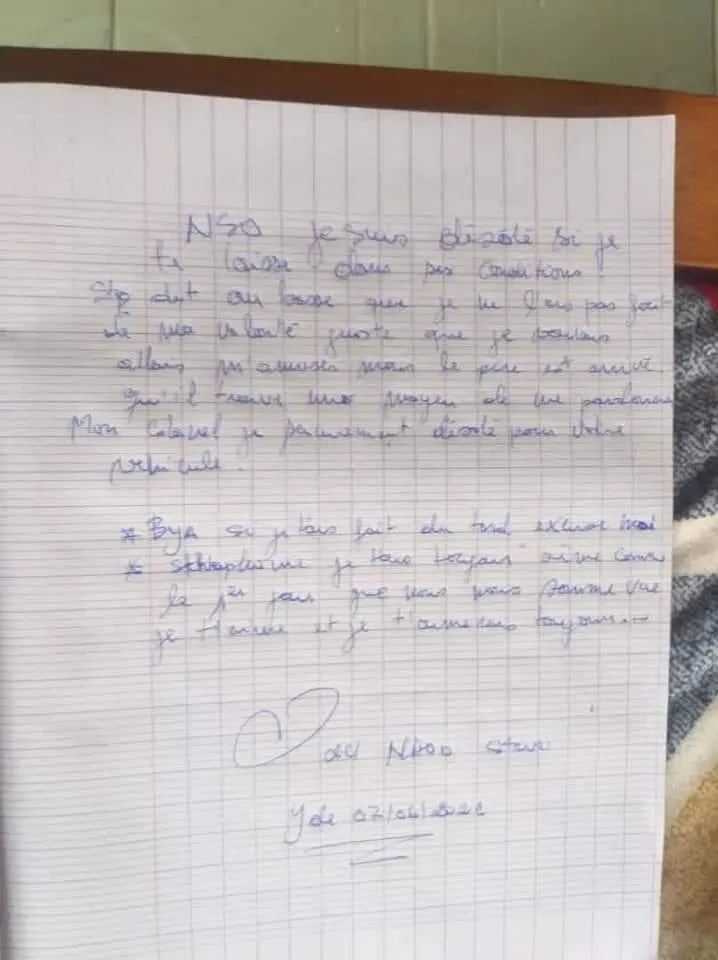 NSO je suis désolé si je
te laisse dans ses conditions.
Stp dit au que je ne l'ais pas fait
de ma volonté juste que je voulais
allais m'amuser mais le pire est arrivé
qu'il trouve une moyen de me pardonner
Mon Colonel je désolé pour votre
véhicule.
* Bya si je t'ais fait du tord excuse moi
* je t'ais toujours aimé comme
le 1er jour que nous nous somme vue
je t'aime et je t'aimerais toujours.
Yde 07/06/2022